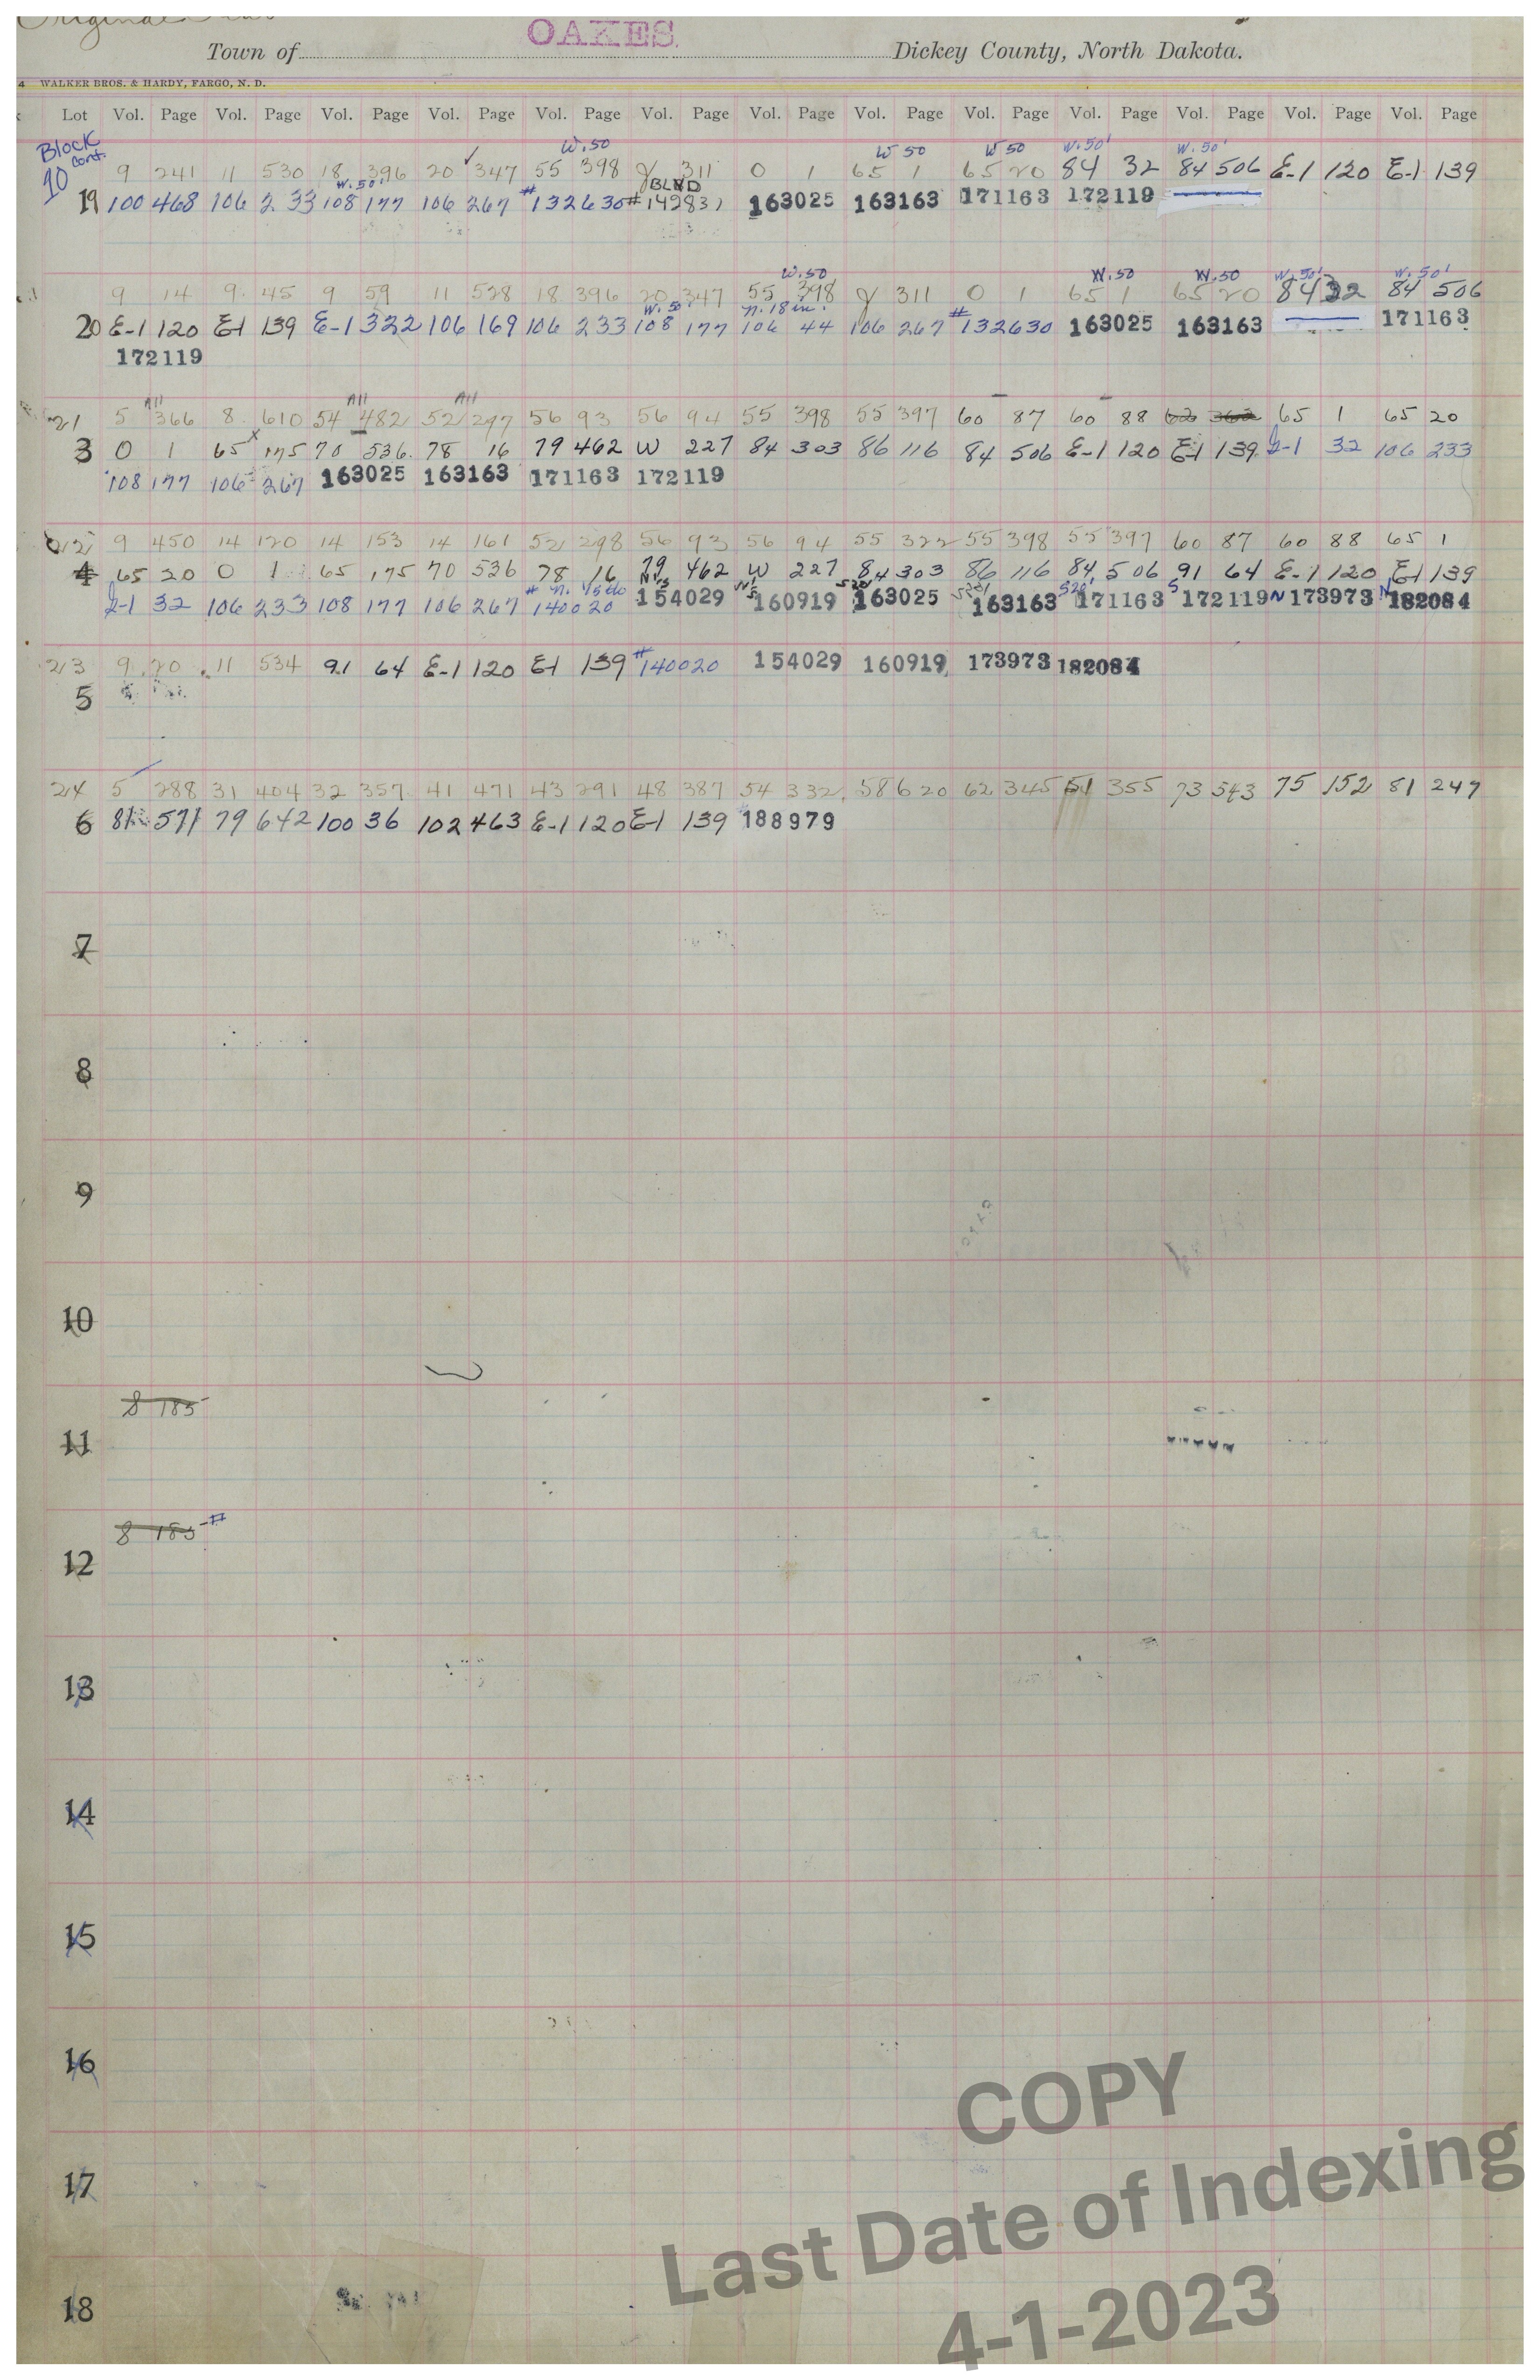 Original
Town of OAKES Dickey County, North Dakota.
4 WALKER BROS. & HARDY, FARGO, N. D.
Lot Vol. Page Vol. Page Vol. Page Vol. Page Vol. Page Vol. Page Vol. Page Vol. Page Vol. Page Vol. Page Vol. Page Vol. Page Vol. Page
Block 10 Cont.
W.50 W 50 W 50 W.50' W.50'
9 241 11 530 18 396 20 347 55 398 311 0 1 65 1 65 20 84 32 84 506 E-1 120 E-1 139
W.50' BLVD
19 100 468 106 233 108 177 106 267 #132630 #142831 163025 163163 171163 172119
W.50 W.50 W.50 W.50' W.50'
9 14 9 45 9 59 11 528 18 396 20 347 55 398 311 0 1 65 1 65 20 84 32 84 506
W.50' n.18 in.
20 E-1 120 E-1 139 E-1 322 106 169 106 233 108 177 106 44 106 267 #132630 163025 163163 171163
172119
All All All
21 5 366 8 610 54 482 52 297 56 93 56 94 55 398 55 397 60 87 60 88 65 1 65 20
3 0 1 65 175 70 536 78 16 79 462 W 227 84 303 86 116 84 506 E-1 120 E-1 139 2-1 32 106 233
108 177 106 267 163025 163163 171163 172119
22 9 450 14 120 14 153 14 161 52 298 56 93 56 94 55 322 55 398 55 397 60 87 60 88 65 1
4 65 20 0 1 65 175 70 536 78 16 79 462 W 227 84 303 86 116 84 506 91 64 E-1 120 E-1 139
2-1 32 106 233 108 177 106 267 #140020 154029 160919 163025 163163 171163 172119 N 173973 N 182084
23 9 20 11 534 91 64 E-1 120 E-1 139 #140020 154029 160919 173973 182084
5
24 5 288 31 404 32 357 41 471 43 291 48 387 54 332 58 620 62 345 51 355 73 543 75 152 81 247
6 81 571 79 642 100 36 102 463 E-1 120 E-1 139 188979
7
8
9
10
8 185
11
8 185
12
13
14
15
16
17
18
COPY
Last Date of Indexing
4-1-2023